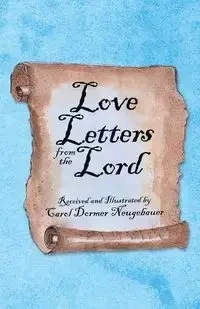 Love
Letters
from the
Lord
Received and Illustrated by
Carol Dormer Neugebauer